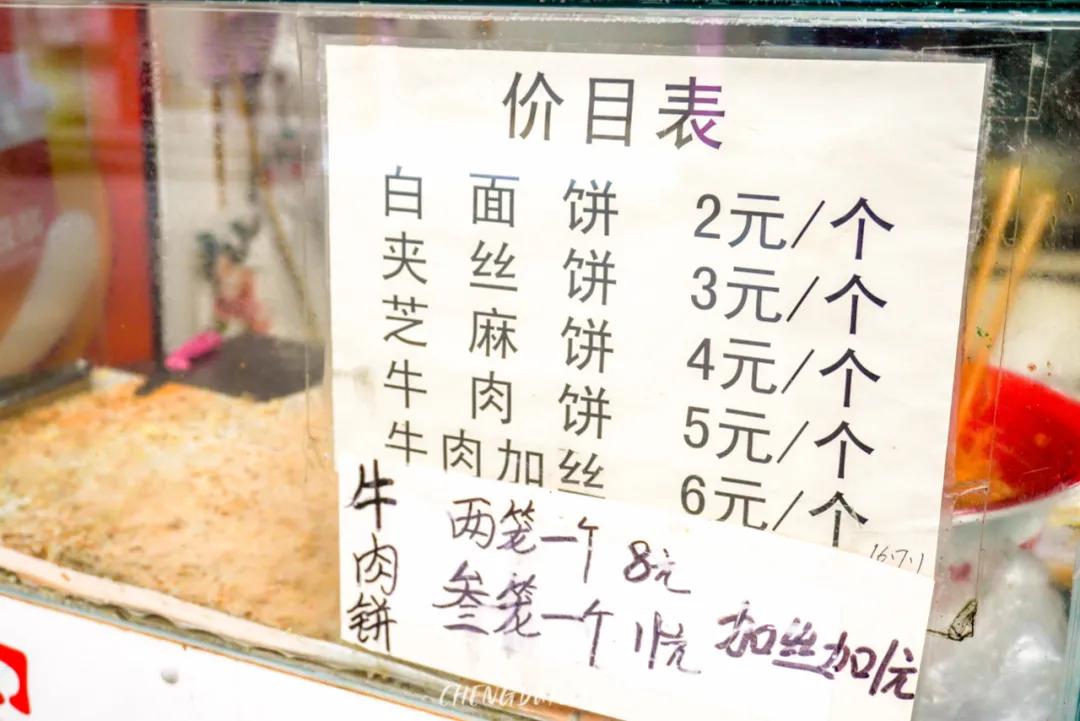 价目表
白面饼 2元/个
夹丝饼 3元/个
芝麻饼 4元/个
牛肉饼 5元/个
牛肉加丝 6元/个
16.7.1
牛肉饼
两笼一个 8元
叁笼一个 11元 加丝加1元